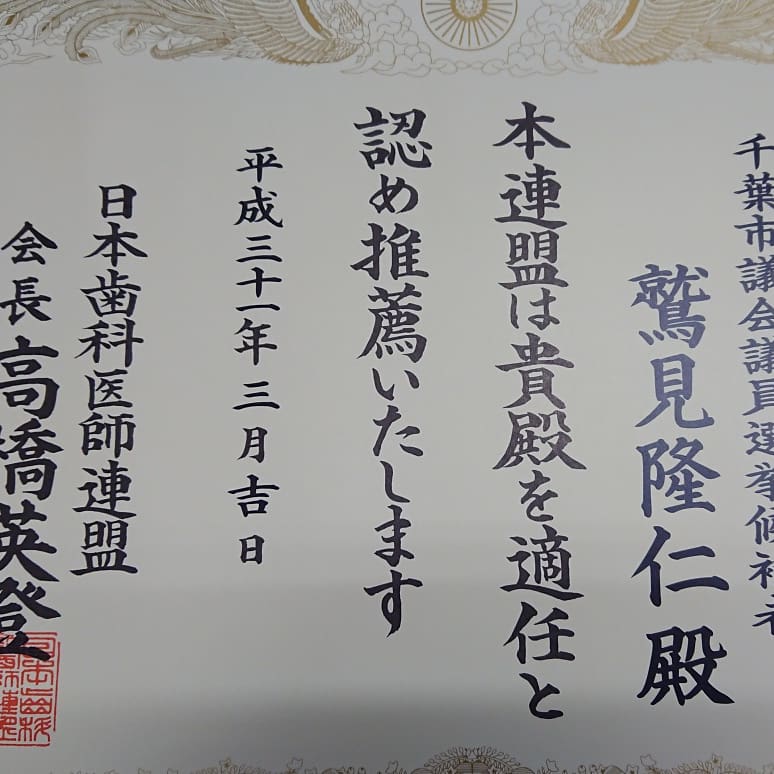 千葉市議会議員選挙候補者
鷲見隆仁殿
本連盟は貴殿を適任と
認め推薦いたします
平成三十一年三月吉日
日本歯科医師連盟
会長 高橋英登